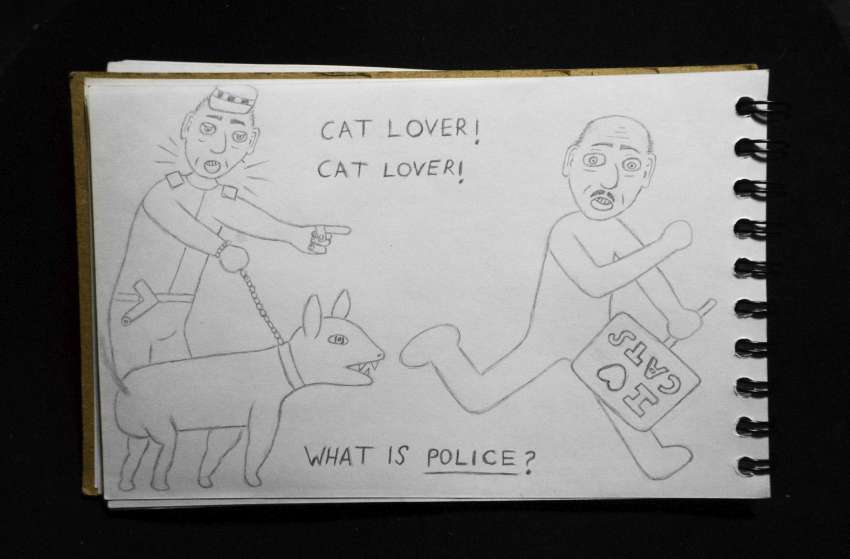 CAT LOVER!
CAT LOVER!
I ♡
CATS
WHAT IS POLICE?